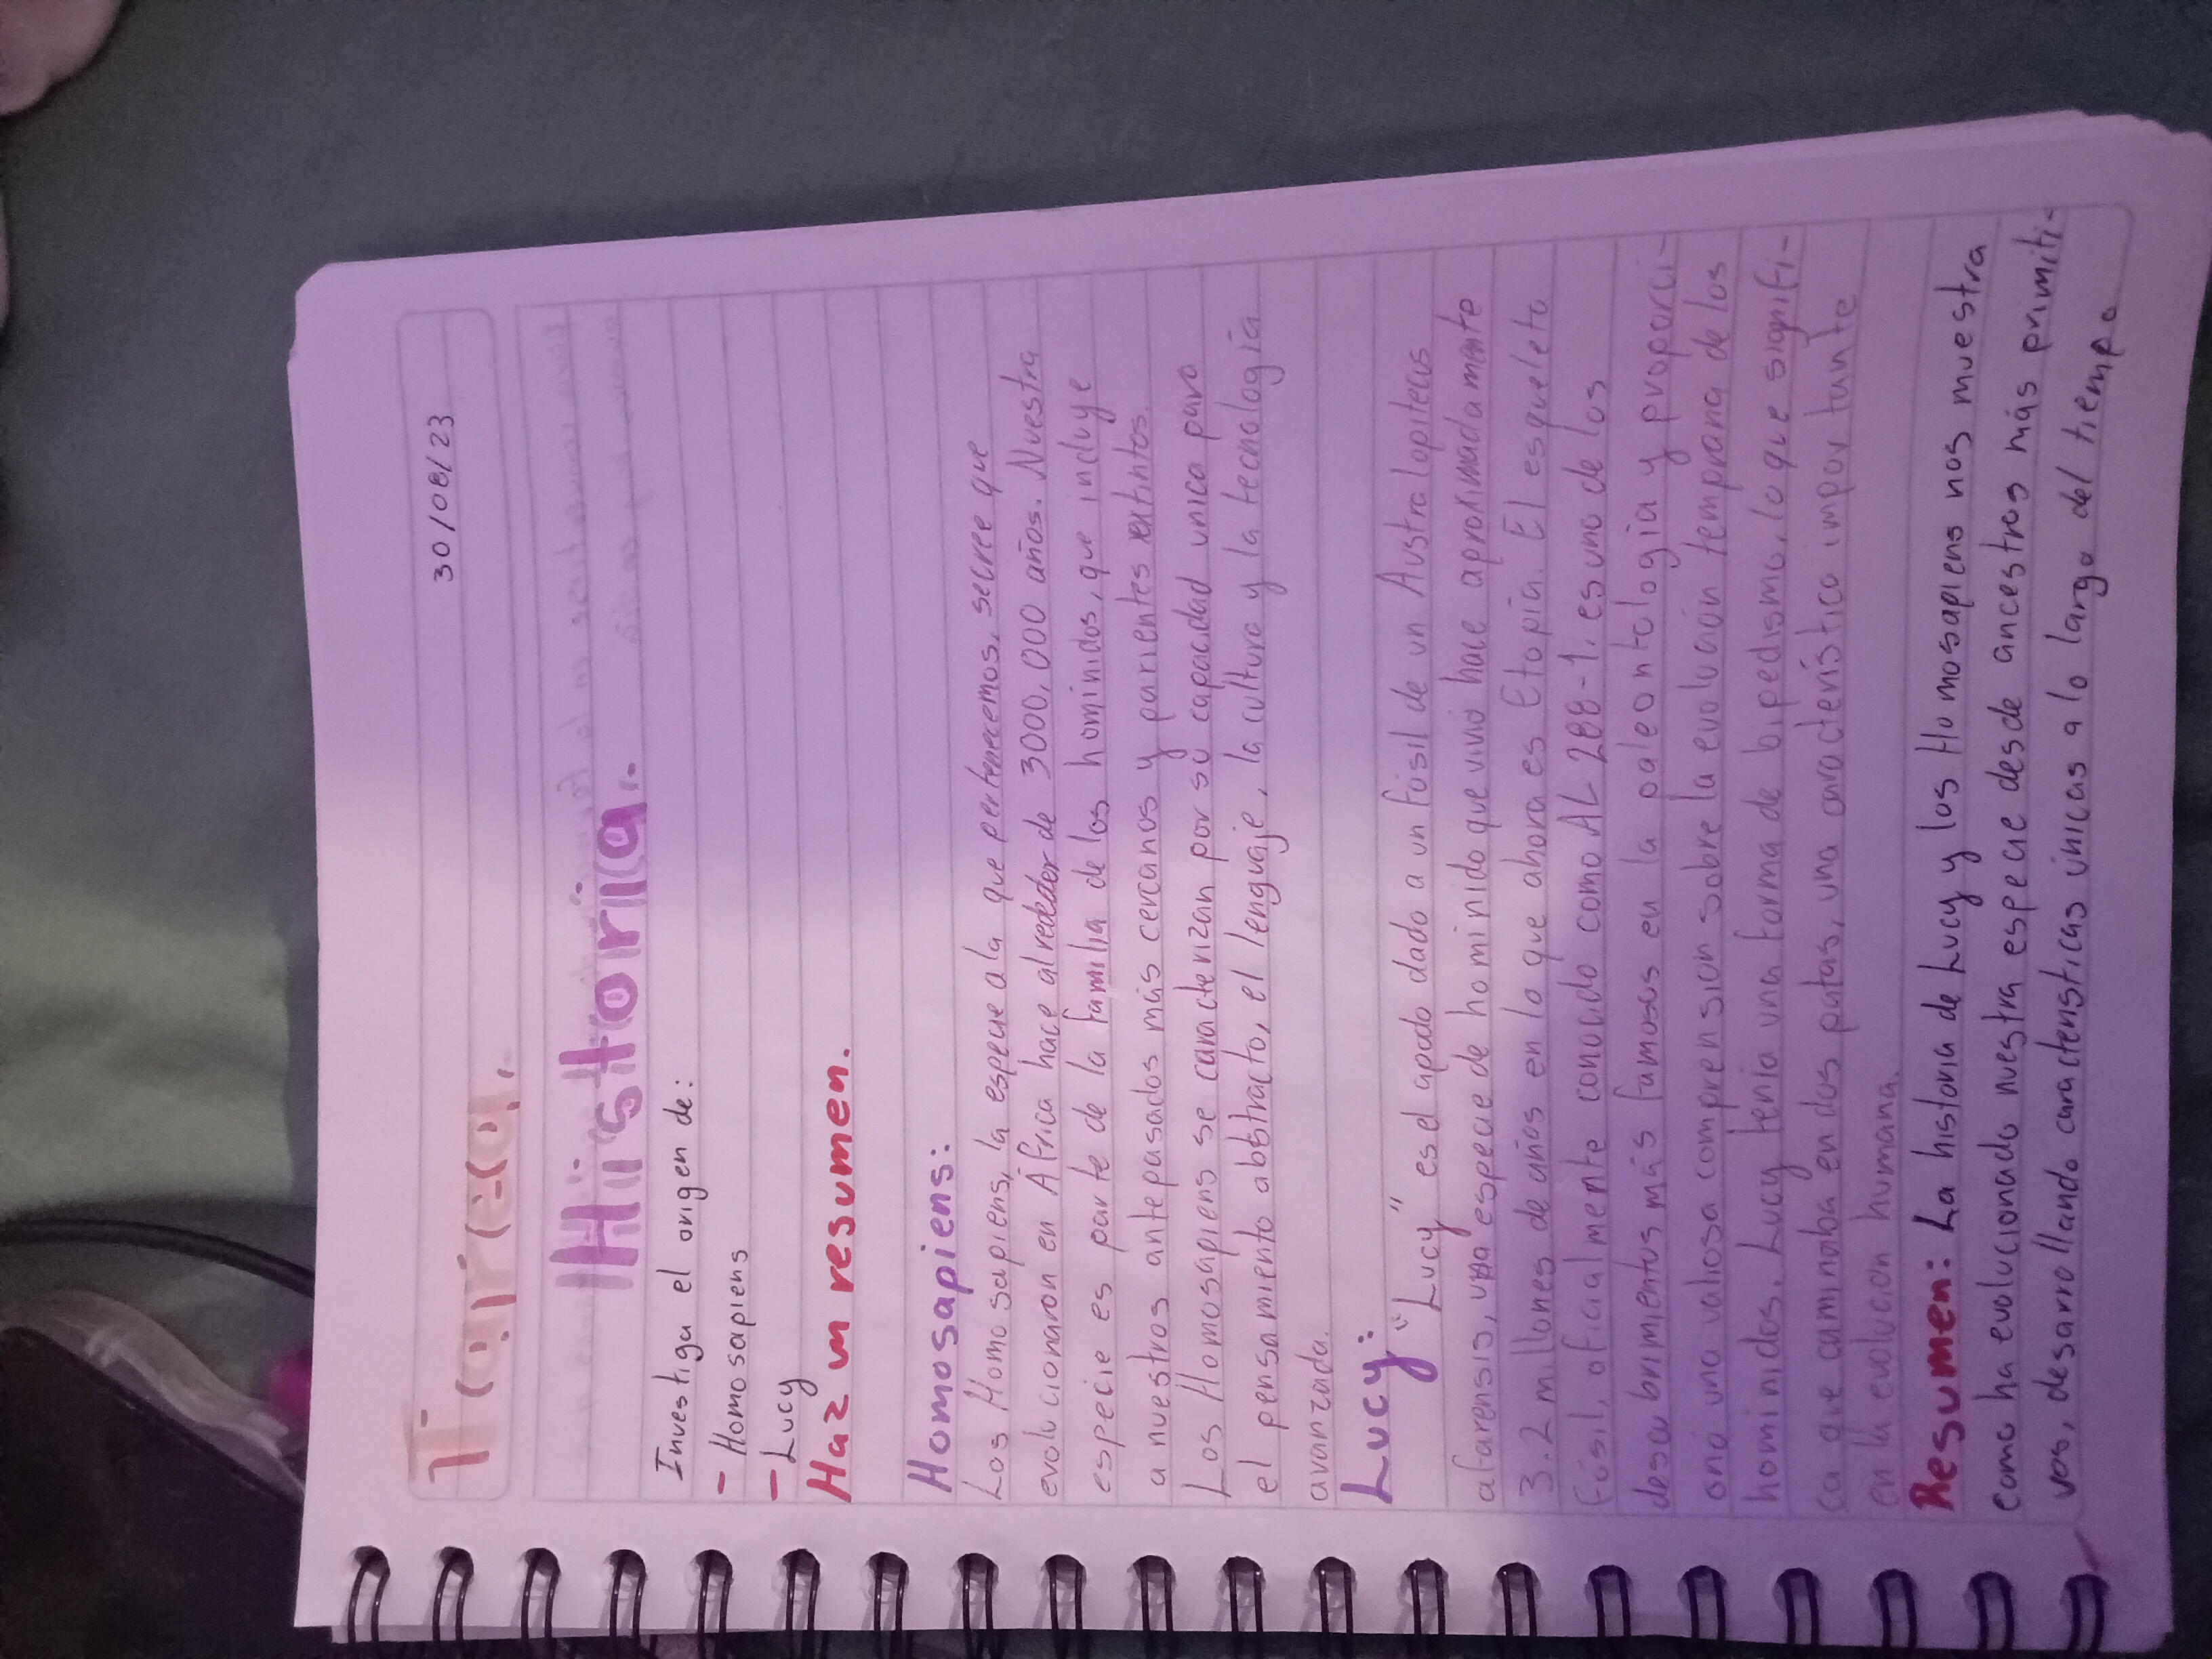 30/08/23
Tarea.
Historia.
Investiga el origen de:
- Homosapiens
- Lucy
Haz un resumen.
Homosapiens:
Los Homo sapiens, la especie a la que pertenecemos, se cree que
evolucionaron en África hace alrededor de 3000,000 años. Nuestra
especie es parte de la familia de los hominidos, que incluye
a nuestros antepasados más cercanos y parientes extintos.
Los Homosapiens se caracterizan por su capacidad unica para
el pensamiento abstracto, el lenguaje, la cultura y la tecnología
avanzada.
Lucy: "Lucy" es el apodo dado a un fósil de un Australopitecus
afarensis, una especie de hominido que vivió hace aproximadamente
3.2 millones de años en lo que ahora es Etopia. El esqueleto
fósil, oficialmente conocido como AL 288-1. es uno de los
descubrimientos más famosos en la paleontologia y proporci-
onó una valiosa comprension sobre la evolución temprana de los
hominidos. Lucy tenía una forma de bipedismo, lo que signifi-
ca que caminaba en dos patas, una característica importante
en la evolución humana.
Resumen: La historia de Lucy y los Homosapiens nos muestra
como ha evolucionado nuestra especie desde ancestros más primiti-
vos, desarrollando características únicas a lo largo del tiempo